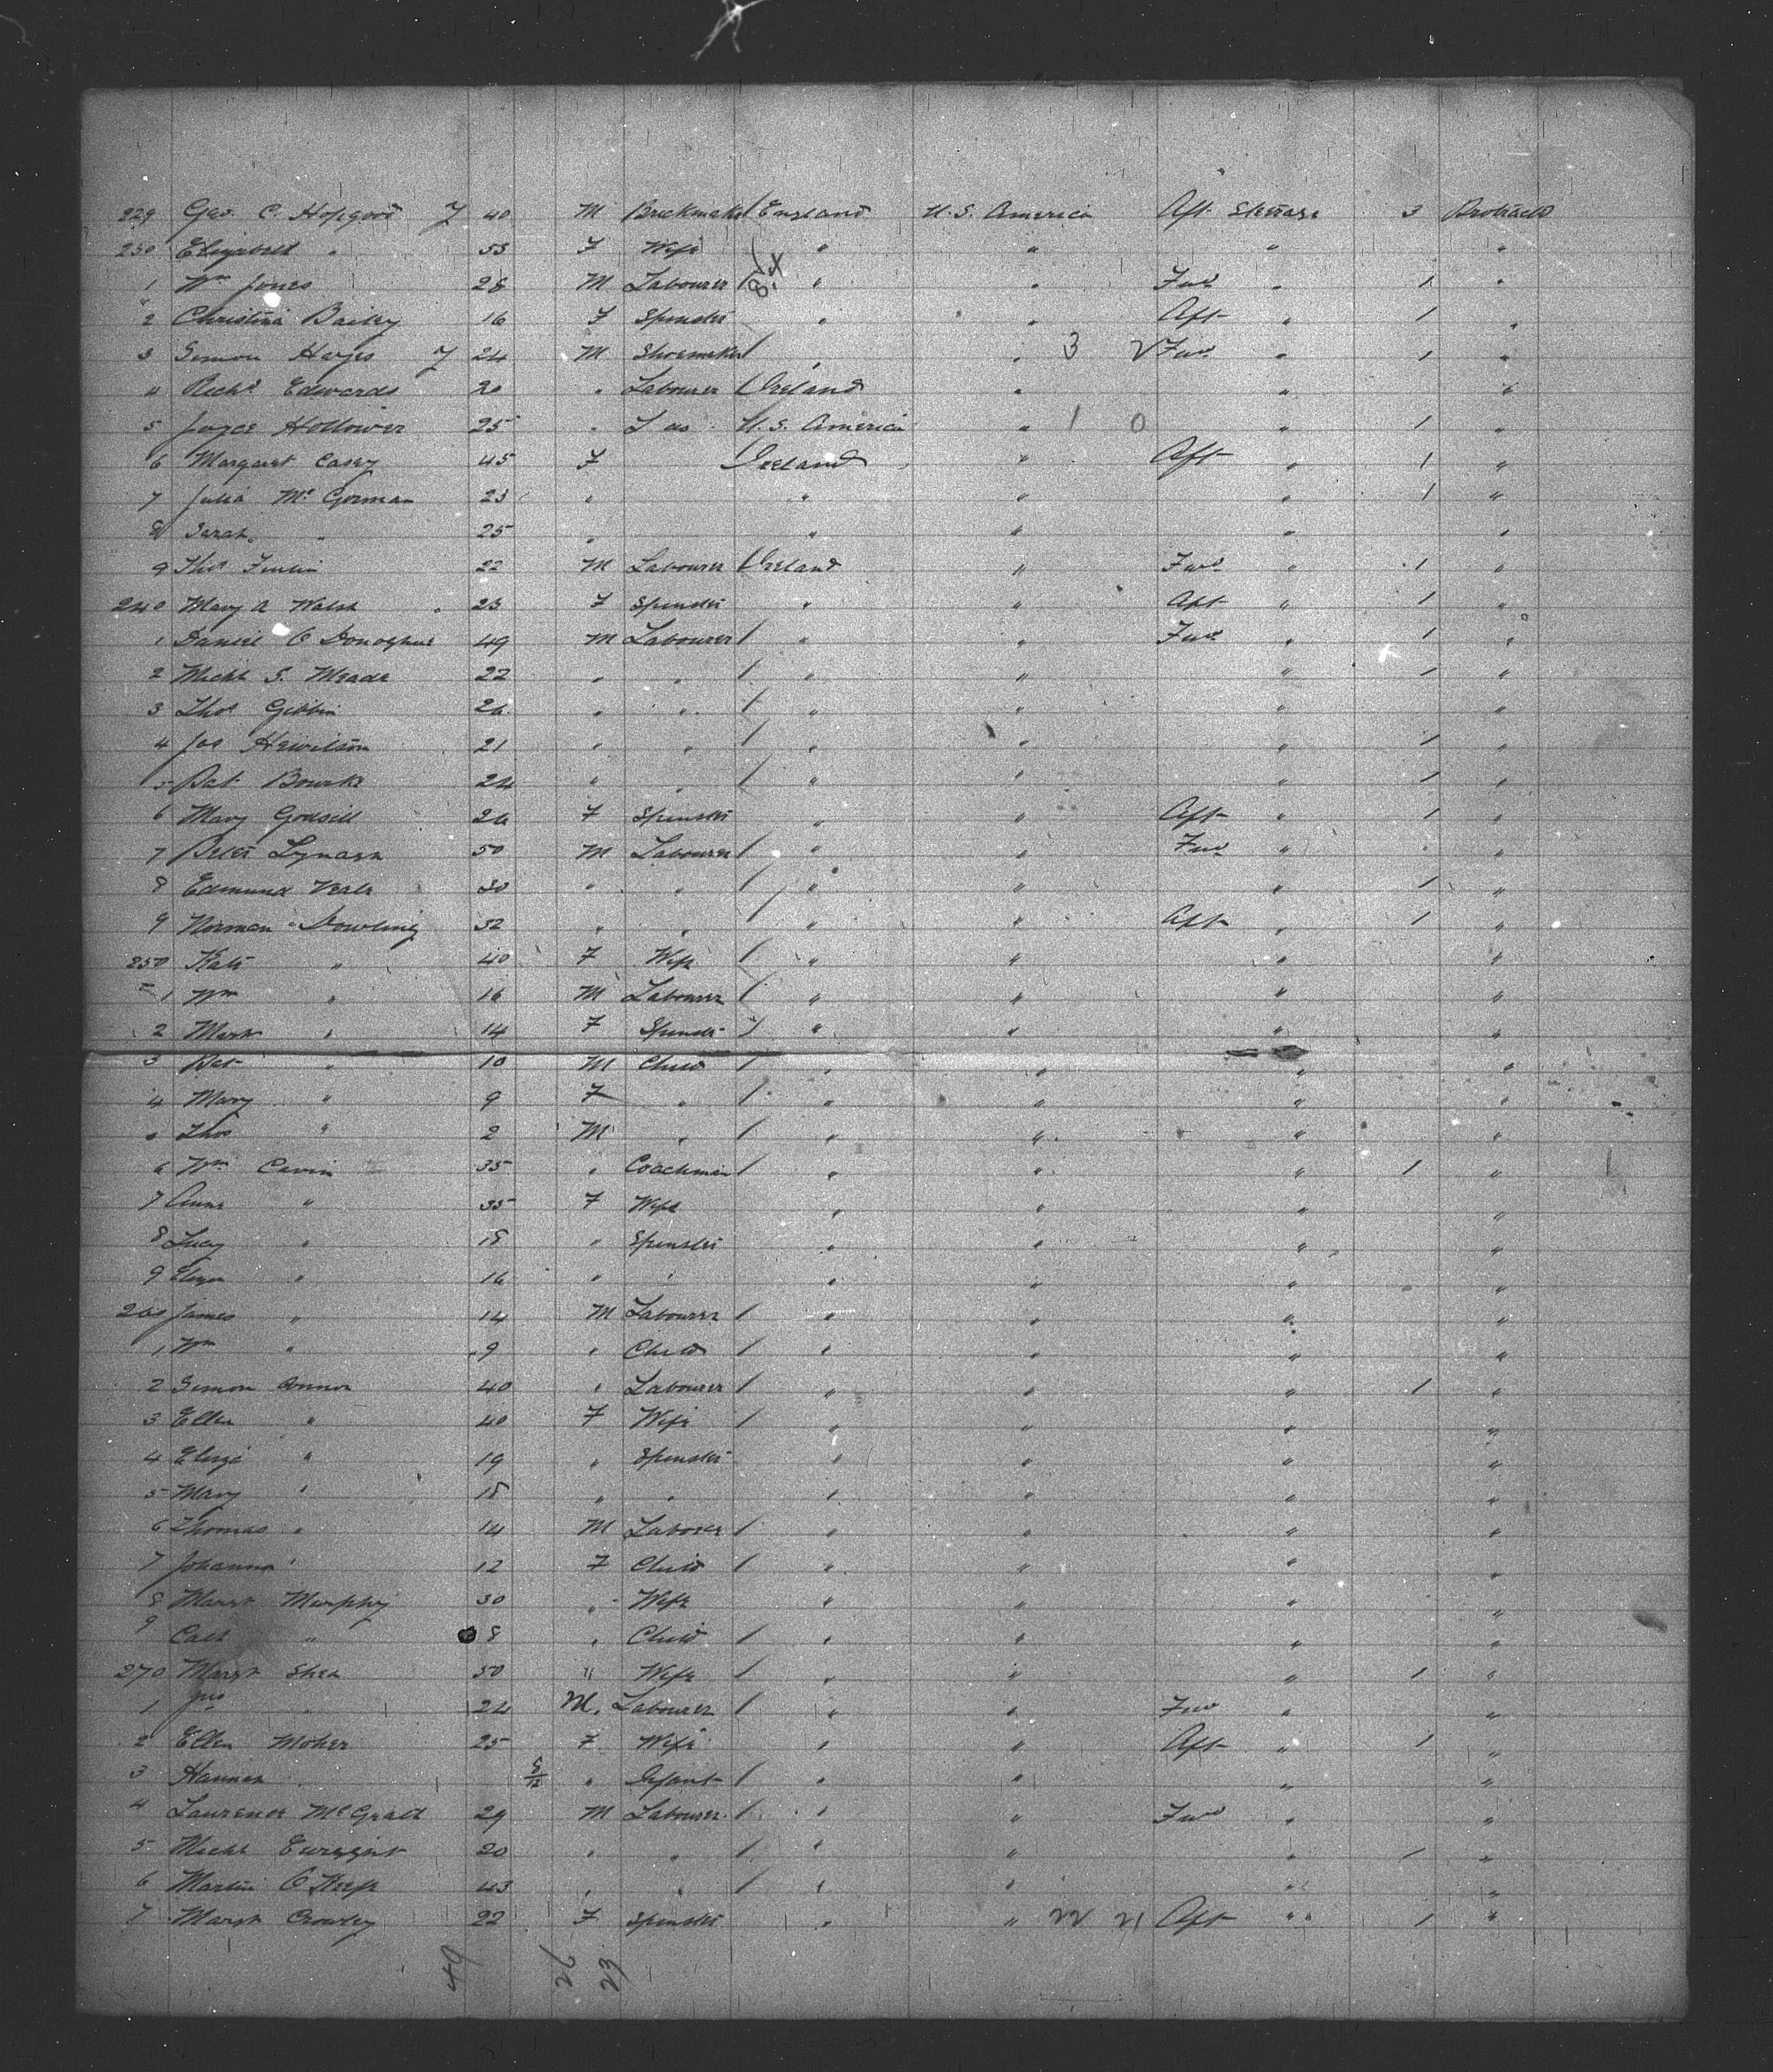 229 Geo. C. Hopgood 7 40 M Brickmaker England U.S. America Aft Steerage 3 Protracted
230 Elizabeth " 53 F Wife " " " "
1 Wm Jones 28 M Labourer " " Fwd " 1 "
2 Christina Bailey 16 F Spinster " " Aft " 1 "
3 Simon Hayes 7 24 M Shoemaker " " 3 2 Fwd " 1 "
4 Richd Edwards 20 " Labourer Ireland " " "
5 25 " U.S. America " 1 0 " 1 "
6 Margaret Casey 45 F Ireland " Aft " 1 "
7 Julia McGorman 23 " " " " 1 "
8 Sarah " 25 " " " " "
9 Thos 22 M Labourer Ireland " Fwd " 1 "
240 Mary A Walsh 23 F Spinster " " Aft " 1 "
1 Daniel O Donoghue 49 M Labourer / " " Fwd " 1 "
2 Michl S. Meade 22 " " / " " " 1 "
3 Thos Gibbin 26 " " / " " " "
4 Jos Hewitson 21 " " / " " " 1 "
5 Pat Bourke 24 " " / " " " 1 "
6 Mary Godsill 26 F Spinster " " Aft " 1 "
7 Peter 50 M Labourer / " " Fwd " "
8 Edmund 30 " " / " " " 1 "
9 Norman Dowling 32 " " / " " Aft " 1 "
250 Kate " 40 F Wife / " " " "
1 Wm " 16 M Labourer / " " " "
2 Margt " 14 F Spinster / " " " "
3 Pat " 10 M Child / " " " "
4 Mary " 9 F " / " " " "
" Thos " 2 M " / " " " "
6 Wm Cavin 35 " Coachman / " " " 1 "
7 Anne " 35 F Wife " " " "
8 Lucy " 18 " Spinster " " " "
9 Eliza " 16 " " " " " "
260 James " 14 M Labourer / " " " "
1 Wm " 9 " Child / " " " "
2 Simon Connor 40 " Labourer / " " " 1 "
3 Ellen " 40 F Wife / " " " "
4 Eliza " 19 " Spinster " " " "
5 Mary " 18 " " " " " "
6 Thomas " 14 M Laborer / " " " "
7 Johanna " 12 F Child / " " " "
8 Margt Murphy 30 " Wife " " " "
9 Cath " 8 " Child / " " " "
270 Margt Shea 50 " Wife / " " " 1 "
1 Jas " 24 M. Labourer / " " Fwd " "
2 Ellen Moher 25 F Wife " " Aft " 1 "
3 Hannah 8/12 " Infant / " " " "
4 Laurence McGrath 29 M Labourer / " " Fwd " "
5 Michl 20 " " / " " " 1 "
6 Martin O Keefe 43 " " / " " " "
7 Margt Crowley 22 F Spinster " " 22 21 Aft " 1 "
49 26 23